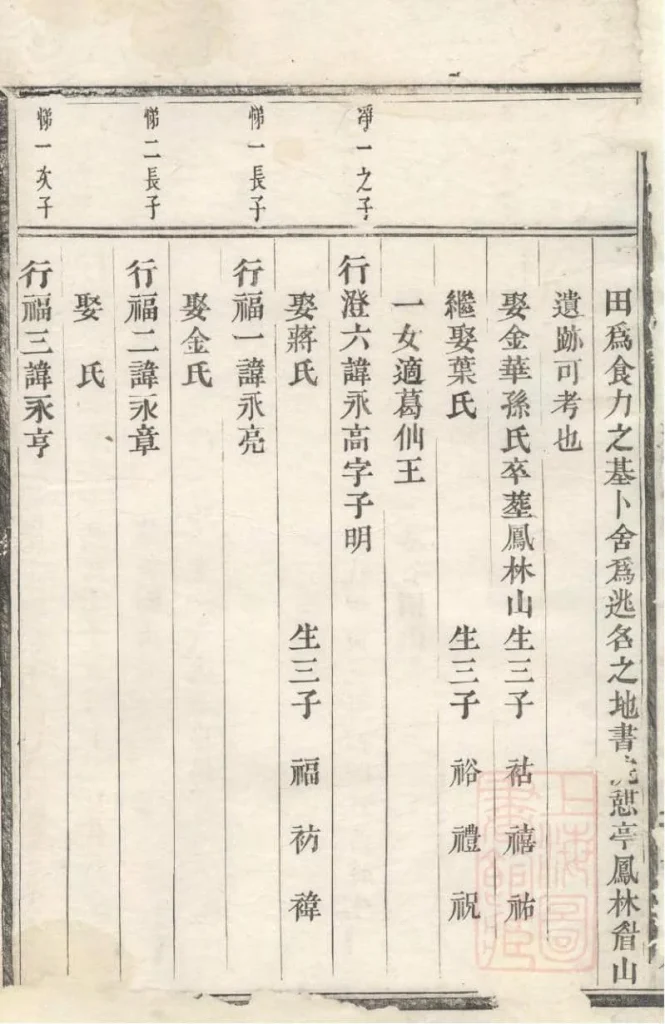 田爲食力之基卜舍爲逃名之地書憇亭鳳林山
遺跡可考也
娶金華孫氏卒塟鳳林山生三子 祜 禧 祐
繼娶葉氏 生三子 裕 禮 祝
一女適葛仙王
凈一之子
行澄六諱永高字子明
娶蔣氏 生三子 福 祊 禕
悌一長子
行福一諱永亮
娶金氏
悌二長子
行福二諱永章
娶 氏
悌一次子
行福三諱永亨
上海圖
書館藏